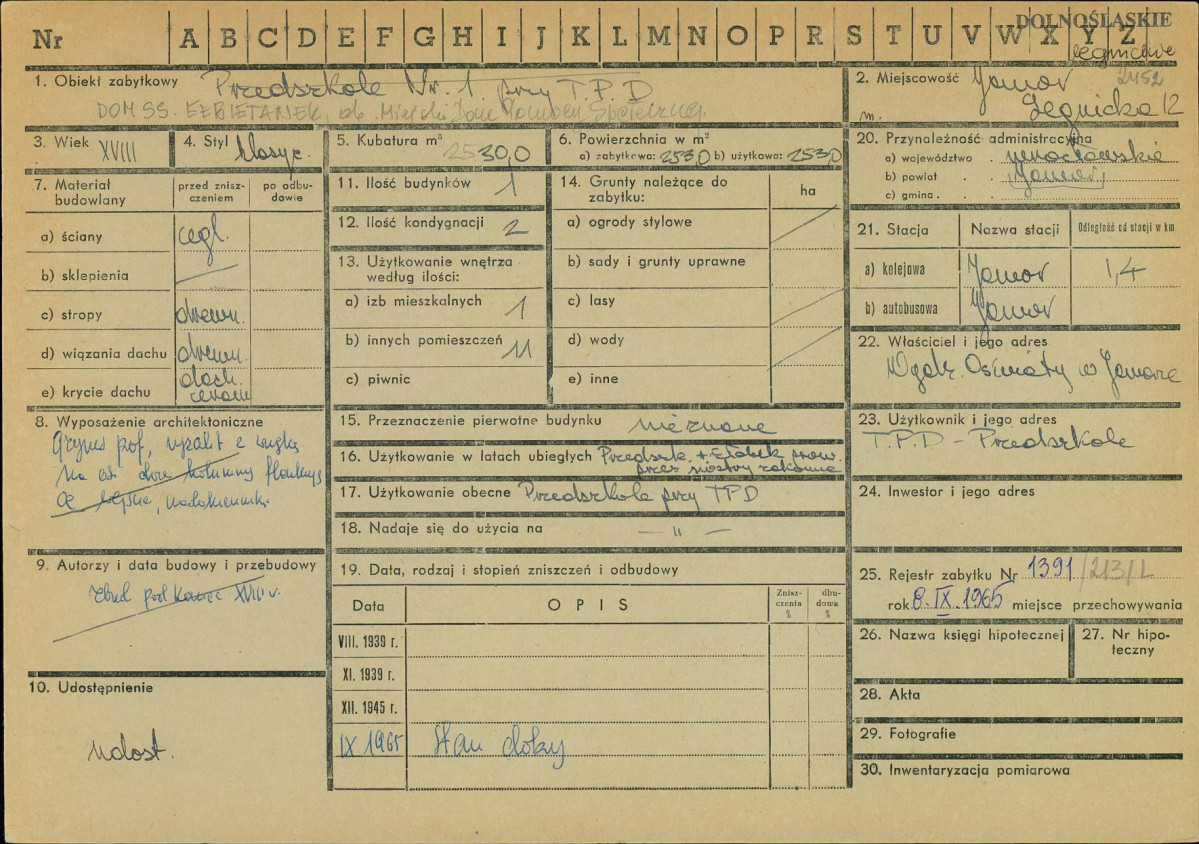 Nr A B C D E F G H I J K L M N O P R S T U V W X Y Z
DOLNOŚLĄSKIE
legnickie
1. Obiekt zabytkowy Przedszkole Nr. 1. przy T.P.D
DOM SS. ELŻBIETANEK, ob. Miejski Dom Pomocy Społecznej.
2. Miejscowość Jawor 2452
m. Legnicka 12
3. Wiek XVIII
4. Styl klasyc.
5. Kubatura m³ 2530,0
6. Powierzchnia w m²
a) zabytkowa: 253,0 b) użytkowa: 253,0
20. Przynależność administracyjna
a) województwo wrocławskie
b) powiat Jawor
c) gmina
7. Materiał budowlany
przed zniszczeniem
po odbudowie
a) ściany cegl.
b) sklepienia —
c) stropy drewn.
d) wiązania dachu drewn.
e) krycie dachu dach. ceram
11. Ilość budynków 1
12. Ilość kondygnacji 2
13. Użytkowanie wnętrza
według ilości:
a) izb mieszkalnych 1
b) innych pomieszczeń 11
c) piwnic
14. Grunty należące do
zabytku:
ha
a) ogrody stylowe
b) sady i grunty uprawne
c) lasy
d) wody
e) inne
21. Stacja
Nazwa stacji
Odległość od stacji w km
a) kolejowa Jawor 1,4
b) autobusowa Jawor
22. Właściciel i jego adres
Wydz. Oświaty w Jaworze
8. Wyposażenie architektoniczne
Gzyms prof, ryzalit z
na oś dwie kolumny
nadokienniki
15. Przeznaczenie pierwotne budynku nieznane
16. Użytkowanie w latach ubiegłych Przedszk. + Żłobek prow.
przez siostry zakonne
17. Użytkowanie obecne Przedszkole przy TPD
18. Nadaje się do użycia na — " —
23. Użytkownik i jego adres
T.P.D – Przedszkole
24. Inwestor i jego adres
9. Autorzy i data budowy i przebudowy
Zbud. pod koniec XVIII w.
19. Data, rodzaj i stopień zniszczeń i odbudowy
Data
OPIS
Zniszczenia %
dbudowa %
VIII. 1939 r.
XI. 1939 r.
XII. 1945 r.
IX 1965 Stan dobry
25. Rejestr zabytku Nr 1391/213/L
rok 8. IX. 1965 miejsce przechowywania
26. Nazwa księgi hipotecznej
27. Nr hipoteczny
10. Udostępnienie
udost.
28. Akta
29. Fotografie
30. Inwentaryzacja pomiarowa